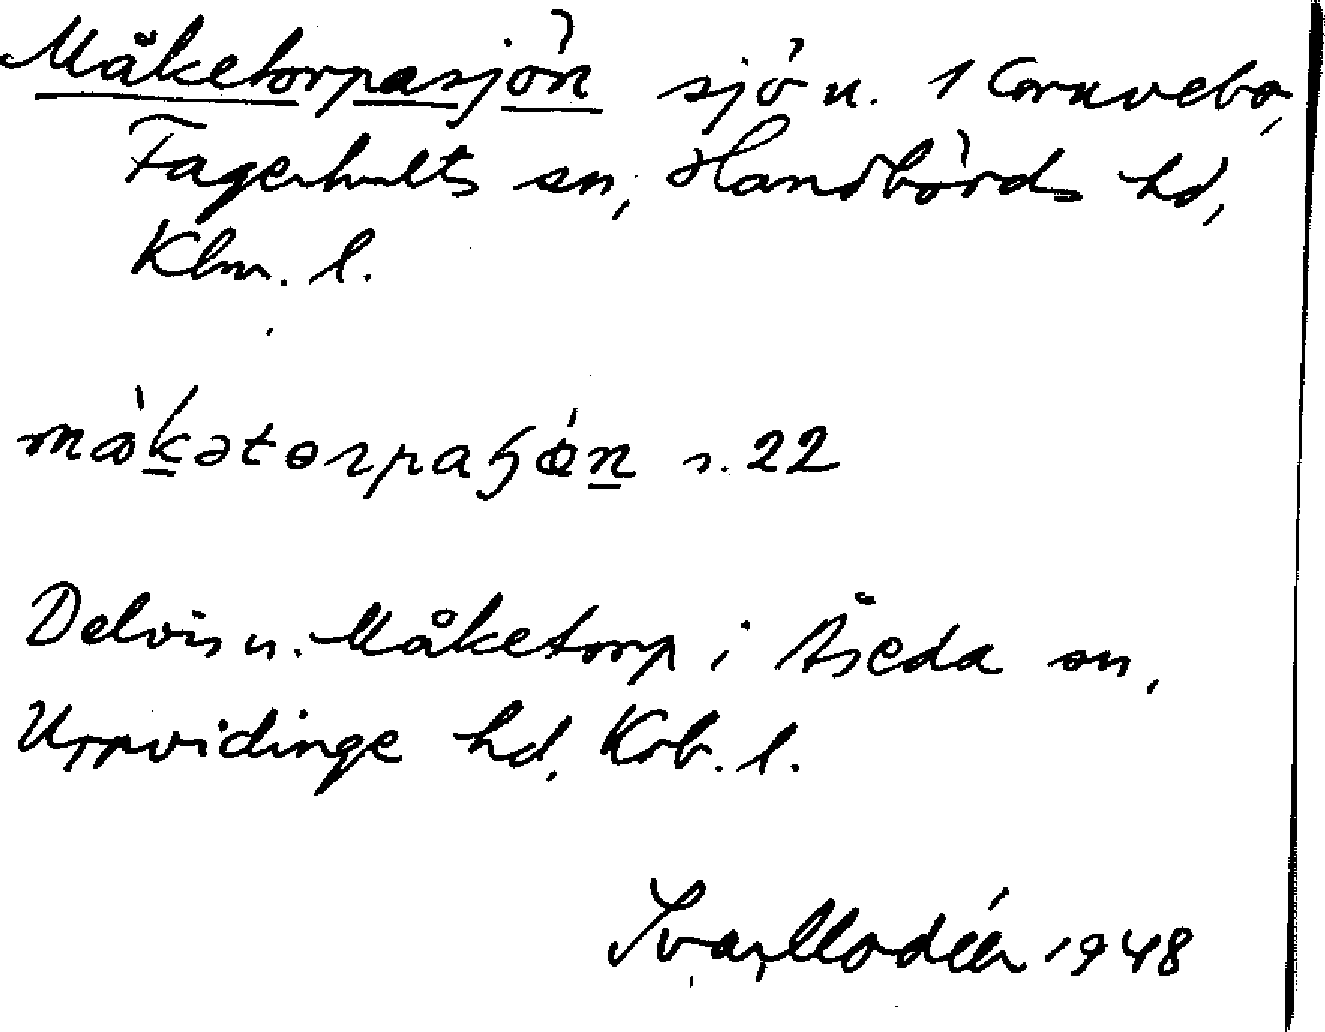 Måketorpasjön sjö u. 1 Cornvebo,
Fagerhults sn, Handbörds hd,
Klm. l.
måkətorpaɧön s. 22
Delvis u. Måketorp i Åseda sn,
Uppvidinge hd, Krb. l.
Ivar Modéer 1948